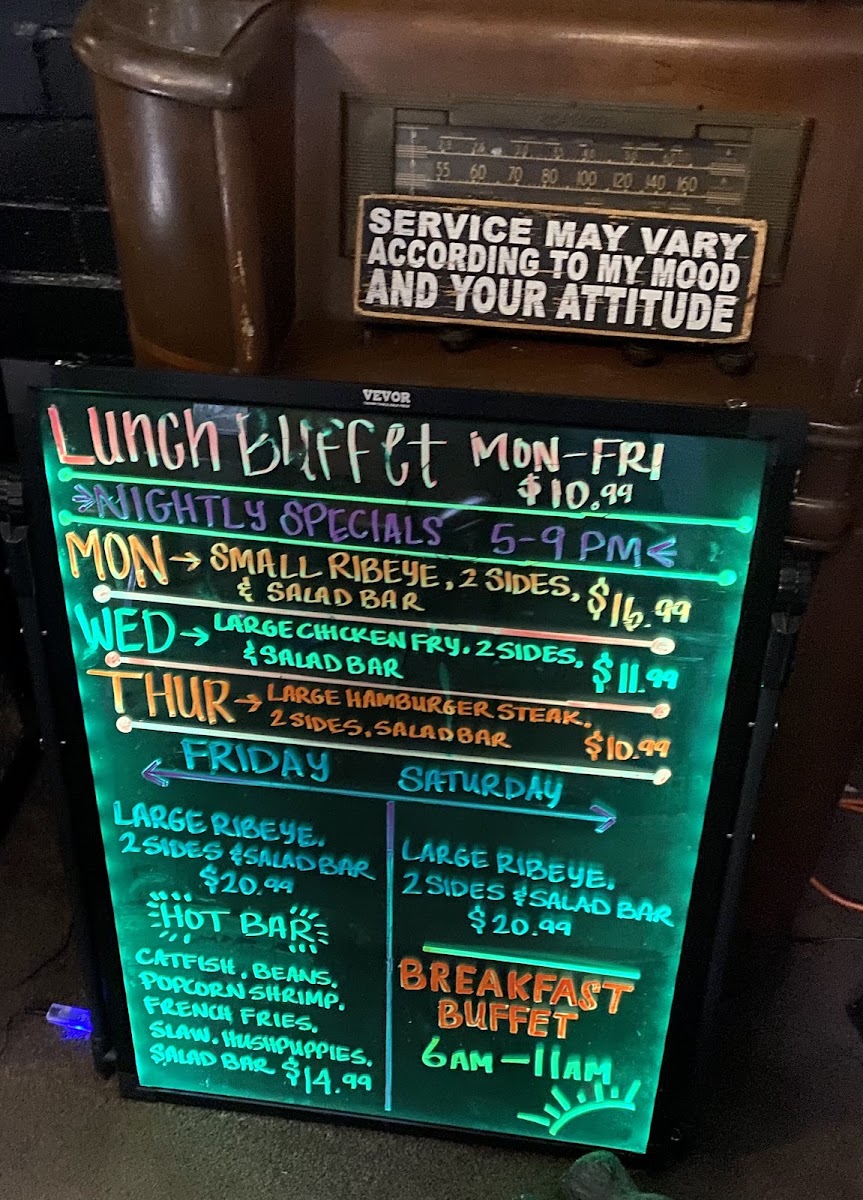 55 60 70 80 100 120 140 160
SERVICE MAY VARY
ACCORDING TO MY MOOD
AND YOUR ATTITUDE
VEVOR
LUNCH BUFFET MON-FRI
$10.99
NIGHTLY SPECIALS 5-9 PM
MON → SMALL RIBEYE, 2 SIDES,
& SALAD BAR $16.99
WED → LARGE CHICKEN FRY, 2 SIDES,
& SALAD BAR $11.99
THUR → LARGE HAMBURGER STEAK,
2 SIDES, SALAD BAR $10.99
FRIDAY
LARGE RIBEYE,
2 SIDES & SALAD BAR
$20.99
HOT BAR
CATFISH, BEANS,
POPCORN SHRIMP,
FRENCH FRIES,
SLAW, HUSHPUPPIES,
SALAD BAR $14.99
SATURDAY
LARGE RIBEYE,
2 SIDES & SALAD BAR
$20.99
BREAKFAST
BUFFET
6AM-11AM